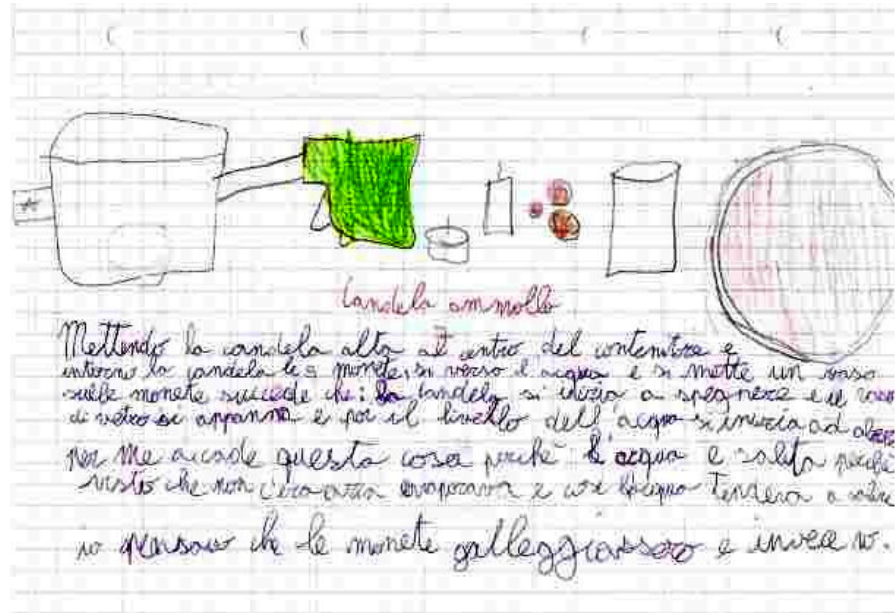 Candela ammollo
Mettendo la candela alta al centro del contenitore e
intorno la candela le monete, si verso l'acqua e si mette un vaso
sulle monete succede che: la candela si inizia a spegnere e il vaso
di vetro si appanna e poi il livello dell'acqua si inizia ad
per me accade questa cosa perché l'acqua e salita perché
visto che non c'era aria evaporava e così l'acqua tendeva a salire
io pensavo che le monete galleggiassero e invece no.